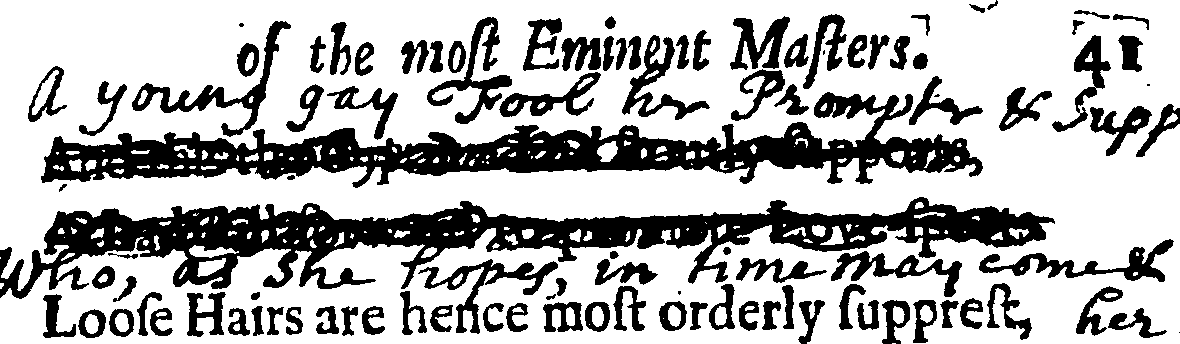 of the moſt Eminent Maſters. 41
A young gay Fool her Prompter & Supp
Supports,
Love ſports
Who, as She hopes, in time may come &
Looſe Hairs are hence moſt orderly ſuppreſt, her